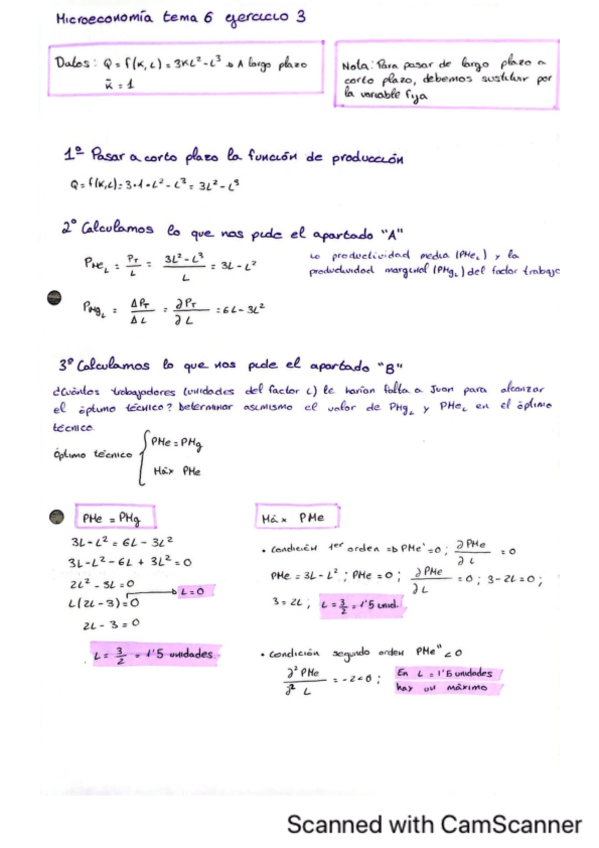 Microeconomía tema 6 ejercicio 3
Datos: Q = f(K, L) = 3KL² - L³ → A largo plazo
K̄ = 1
Nota: Para pasar de largo plazo a
corto plazo, debemos sustituir por
la variable fija
1º Pasar a corto plazo la función de producción
Q = f(K,L) = 3·1·L² - L³ = 3L² - L³
2º Calculamos lo que nos pide el apartado "A"
PMe_L = P_T / L = (3L² - L³) / L = 3L - L²
La productividad media (PMe_L) y la
productividad marginal (PMg_L) del factor trabajo
PMg_L = ΔP_T / ΔL = ∂P_T / ∂L = 6L - 3L²
3º Calculamos lo que nos pide el apartado "B"
¿Cuántos trabajadores (unidades del factor L) le harían falta a Juan para alcanzar
el óptimo técnico? Determinar asimismo el valor de PMg_L y PMe_L en el óptimo
técnico.
Óptimo técnico { PMe = PMg
Máx PMe
PMe = PMg
3L - L² = 6L - 3L²
3L - L² - 6L + 3L² = 0
2L² - 3L = 0
L(2L - 3) = 0 → L = 0
2L - 3 = 0
L = 3/2 = 1'5 unidades
Máx PMe
• Condición 1er orden ⇒ PMe' = 0; ∂PMe / ∂L = 0
PMe = 3L - L²; PMe = 0; ∂PMe / ∂L = 0; 3 - 2L = 0;
3 = 2L; L = 3/2 = 1'5 unid.
• Condición segundo orden PMe'' < 0
∂²PMe / ∂²L = -2 < 0; En L = 1'5 unidades
hay un máximo
Scanned with CamScanner